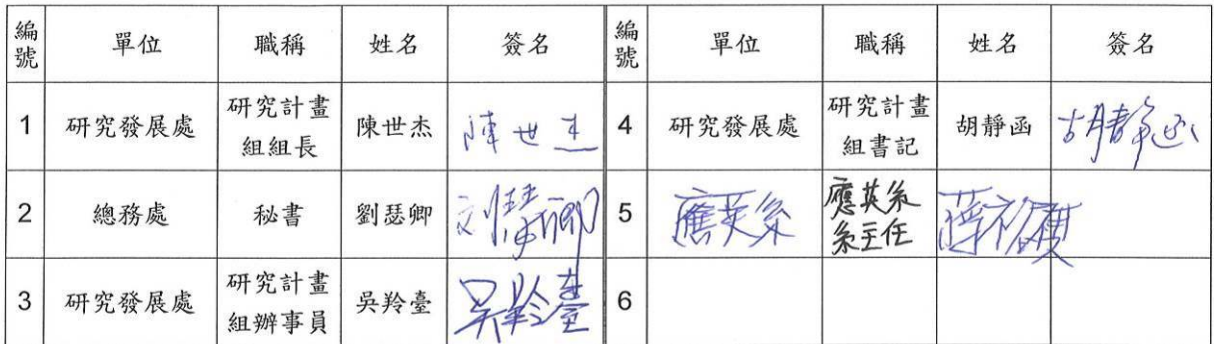 編號 單位 職稱 姓名 簽名 編號 單位 職稱 姓名 簽名
1 研究發展處 研究計畫組組長 陳世杰 陳世杰 4 研究發展處 研究計畫組書記 胡靜函 胡靜函
2 總務處 秘書 劉瑟卿 5 應英系 應英系系主任
3 研究發展處 研究計畫組辦事員 吳羚臺 吳羚臺 6